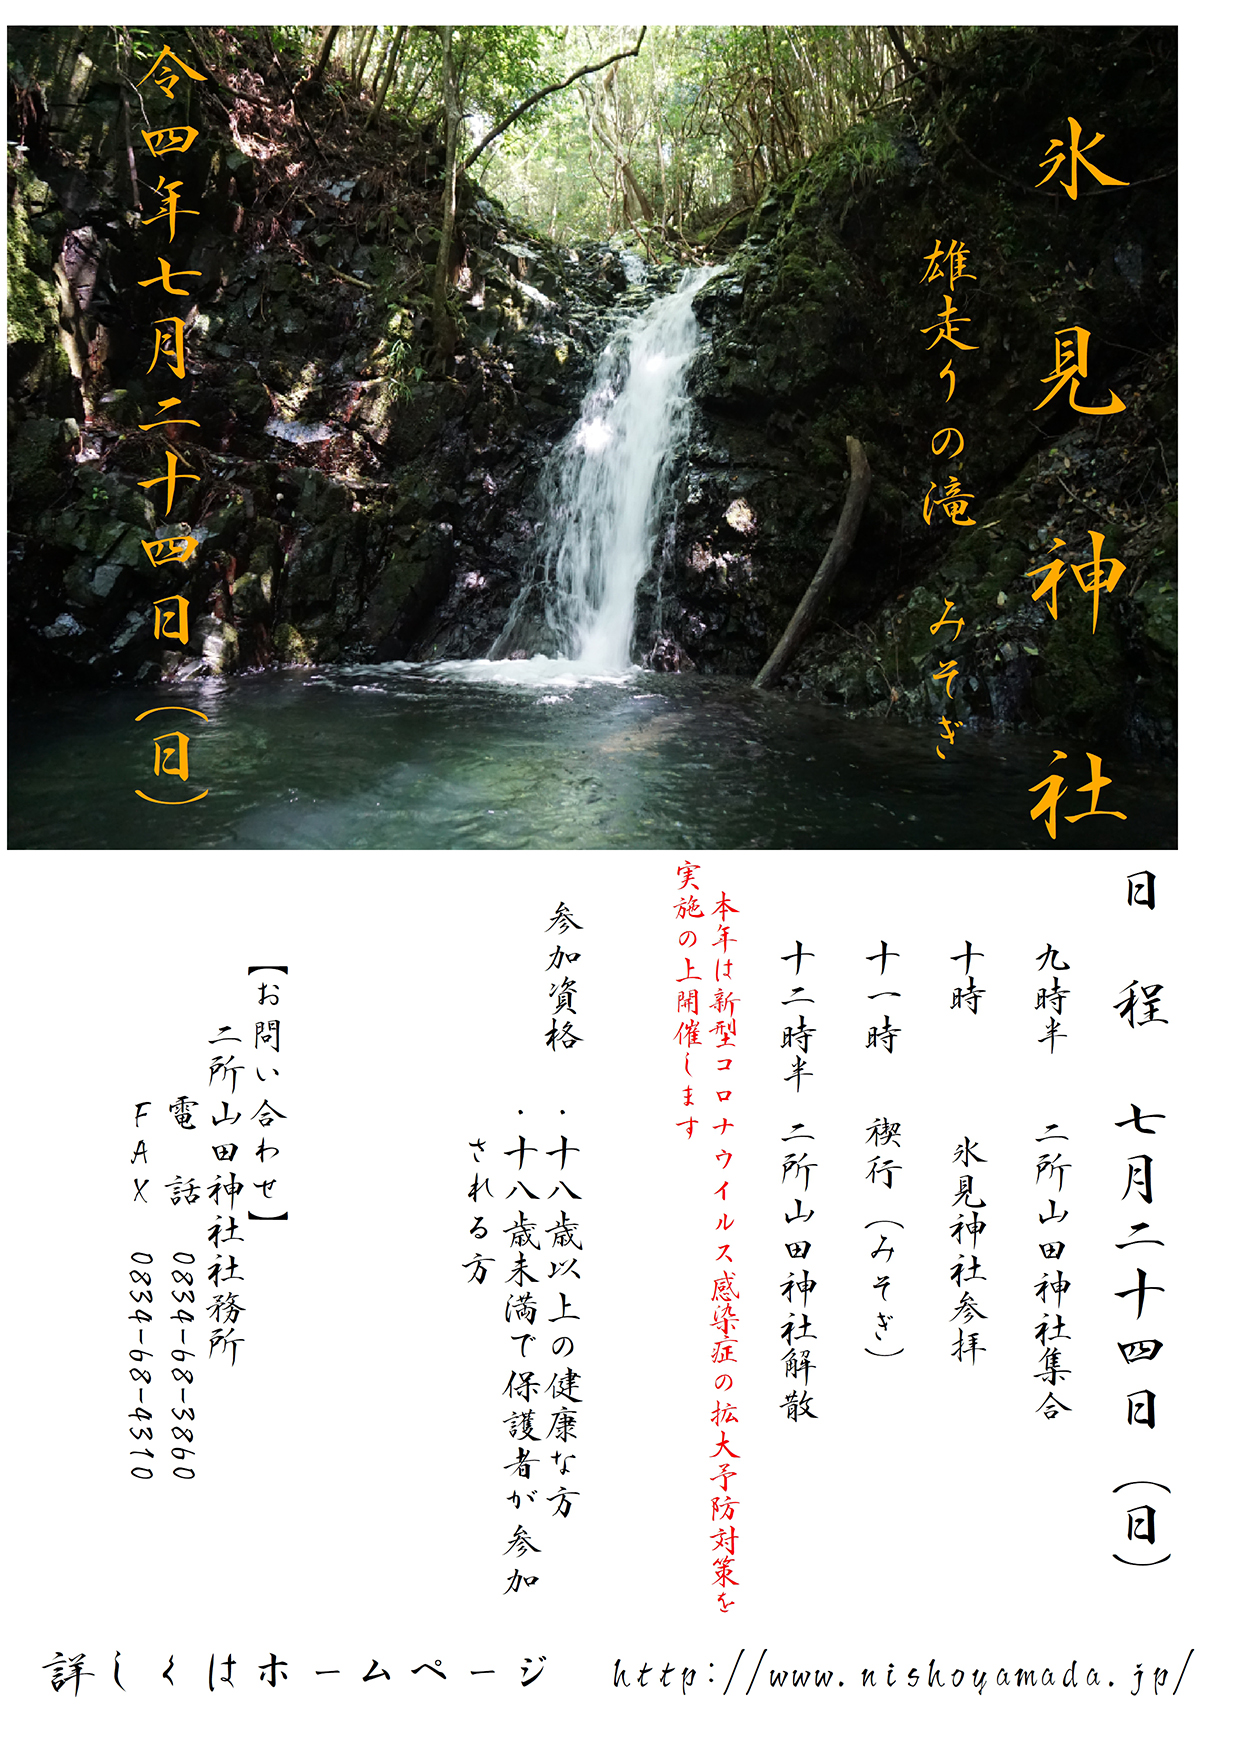 氷見神社
雄走りの滝 みそぎ
令四年七月二十四日（日）
日程 七月二十四日（日）
九時半 二所山田神社集合
十時 氷見神社参拝
十一時 禊行（みそぎ）
十二時半 二所山田神社解散
本年は新型コロナウイルス感染症の拡大予防対策を
実施の上開催します
参加資格 ・十八歳以上の健康な方
・十八歳未満で保護者が参加
される方
【お問い合わせ】
二所山田神社社務所
電話 0834-68-3860
FAX 0834-68-4310
詳しくはホームページ http://www.nishoyamada.jp/